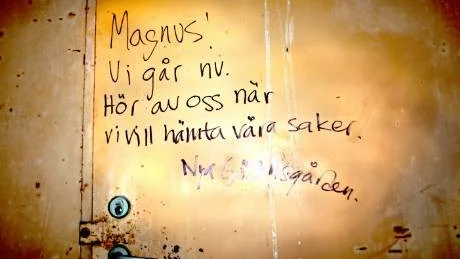 Magnus!
Vi går nu.
Hör av oss när
vi vill hämta våra saker.